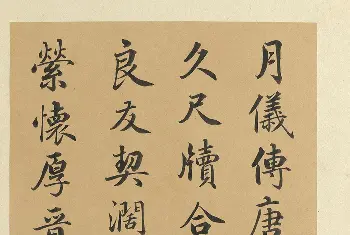 月儀傳唐
久尺牘合
良友契濶
縈懷厚晉